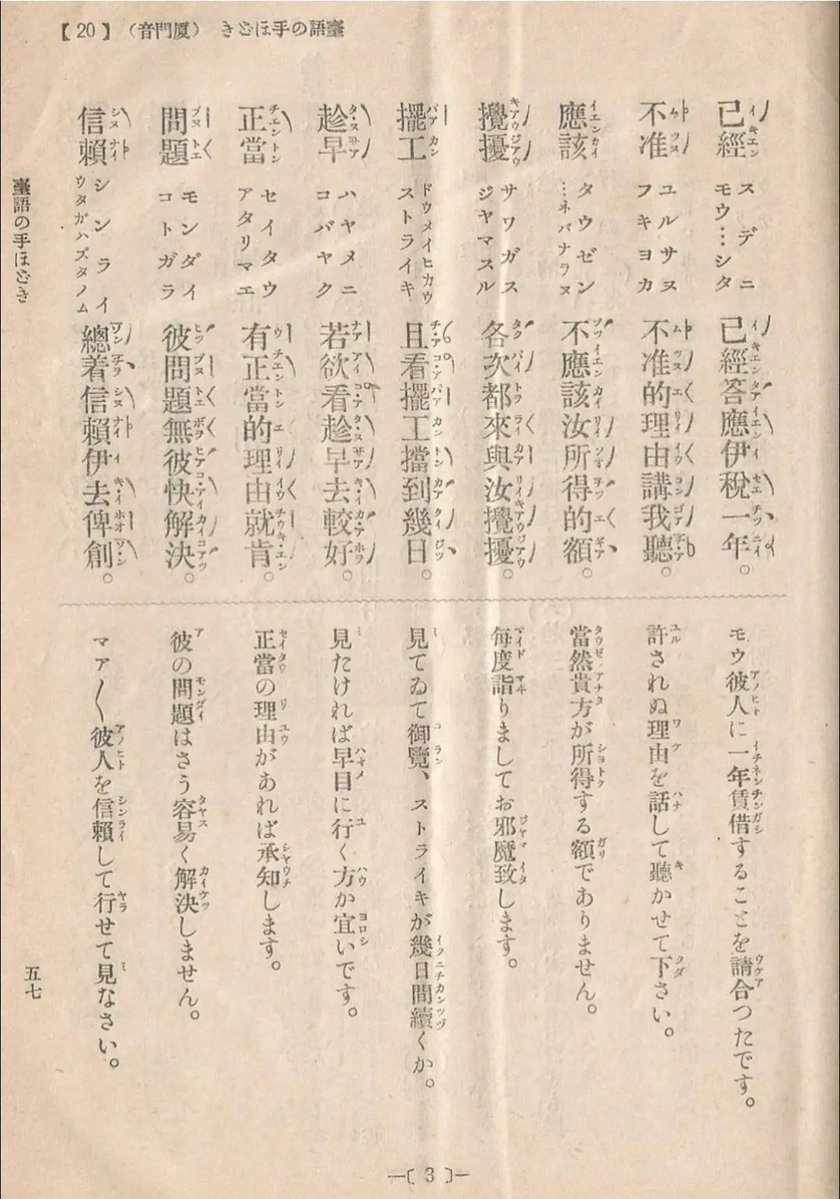 臺語の手ほどき (廈門音)【20】
已經 スデニ モウ…シタ 已經答應伊稅一年。 モウ彼人に一年賃借することを請合つたです。
不准 ユルサヌ フキヨカ 不准的理由講我聽。 許されぬ理由を話して聽かせて下さい。
應該 タウゼン …ネバナラヌ 不應該汝所得的額。 當然貴方が所得する額でありません。
攪擾 サワガス ジヤマスル 各次都來與汝攪擾。 每度詣りましてお邪魔致します。
擺工 ドウメイヒカウ ストライキ 且看擺工擋到幾日。 見てゐて御覽、ストライキが幾日間續くか。
趁早 ハヤメニ コバヤク 若欲看趁早去較好。 見たければ早目に行く方か宜いです。
正當 セイタウ アタリマエ 有正當的理由就肯。 正當の理由があれば承知します。
問題 モンダイ コトガラ 彼問題無彼快解決。 彼の問題はさう容易く解決しません。
信賴 シンライ ウタガハズタノム 總着信賴伊去俾創。 マア〱彼人を信賴して行せて見なさい。
臺語の手ほどき
五七
—〔3〕—